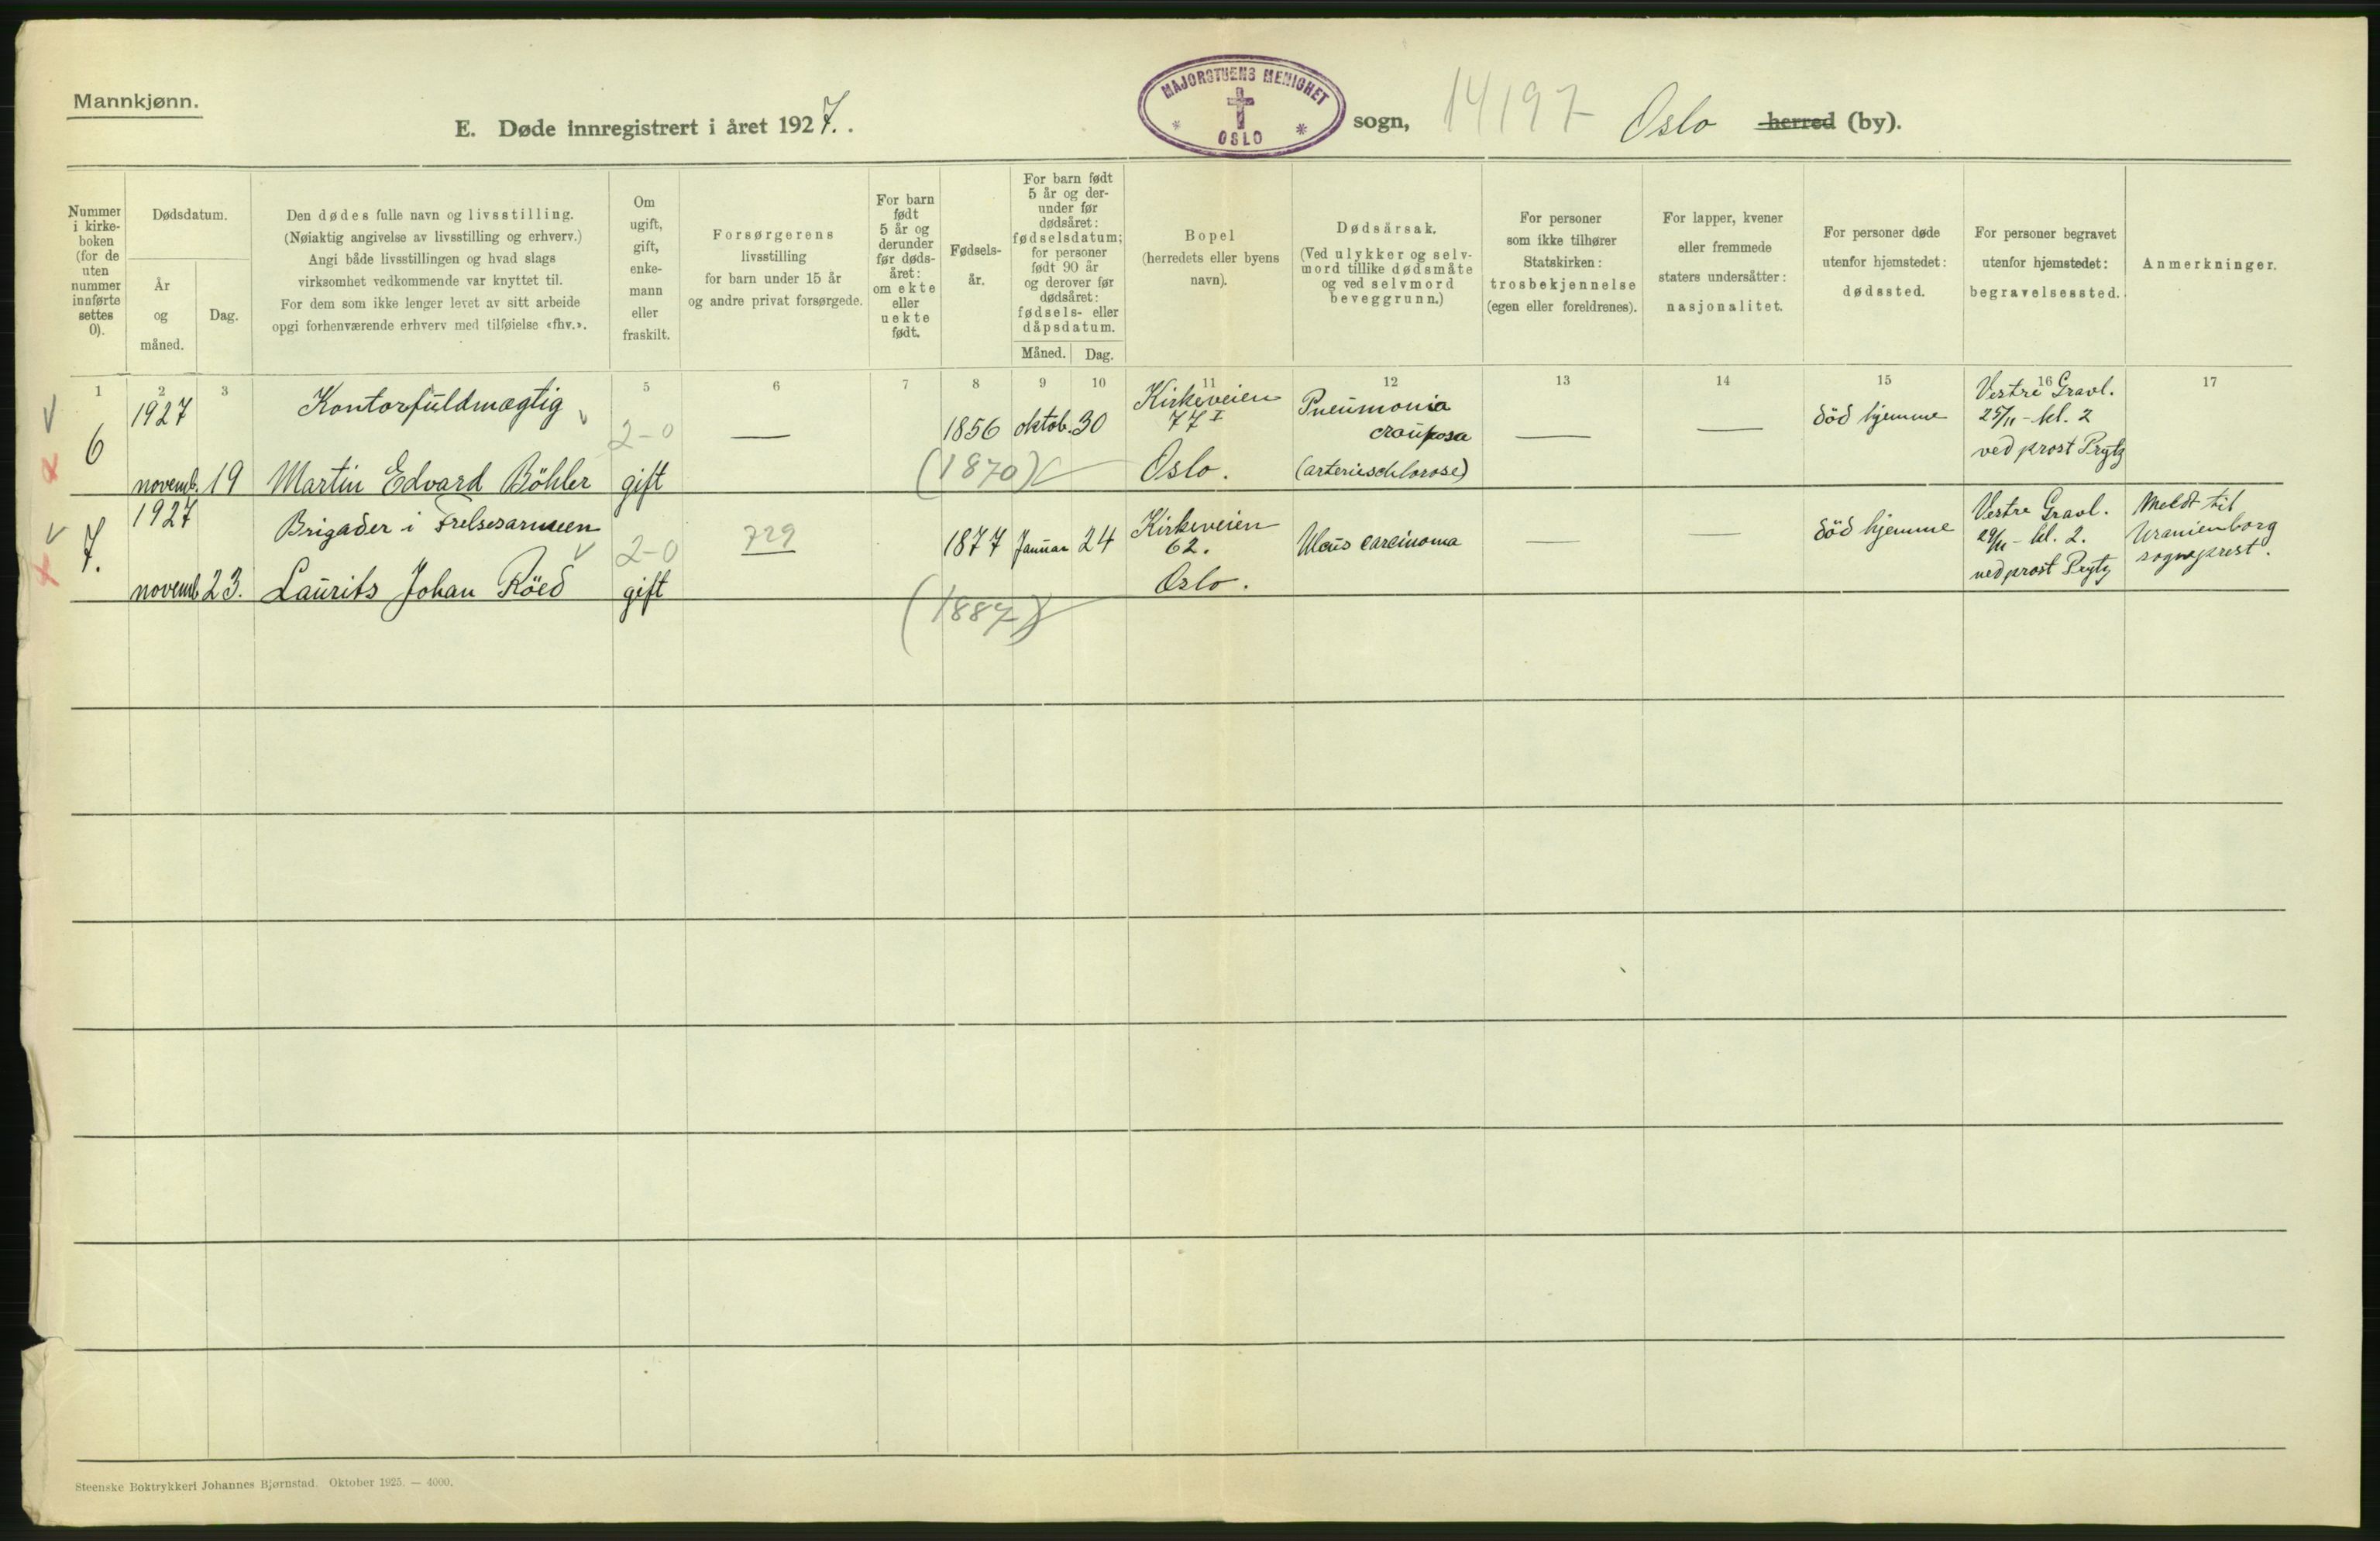 Mannkjønn.
E. Døde innregistrert i året 1927. .
MAJORSTUENS MENIGHET
* OSLO *
sogn, 14197 Oslo herred (by).
Nummer i kirke-boken (for de uten nummer innførte settes 0).
Dødsdatum.
År og måned.
Dag.
Den dødes fulle navn og livsstilling.
(Nøiaktig angivelse av livsstilling og erhverv.)
Angi både livsstillingen og hvad slags
virksomhet vedkommende var knyttet til.
For dem som ikke lenger levet av sitt arbeide
opgi forhenværende erhverv med tilføielse «fhv.».
Om ugift, gift, enke-mann eller fraskilt.
Forsørgerens
livsstilling
for barn under 15 år
og andre privat forsørgede.
For barn født 5 år og derunder før døds-året: om ekte eller uekte født.
Fødsels-år.
For barn født 5 år og der-under før dødsåret: fødselsdatum; for personer født 90 år og derover før dødsåret: fødsels- eller dåpsdatum.
Måned. Dag.
Bopel
(herredets eller byens
navn).
Dødsårsak.
(Ved ulykker og selv-
mord tillike dødsmåte
og ved selvmord
beveggrunn.)
For personer
som ikke tilhører
Statskirken:
trosbekjennelse
(egen eller foreldrenes).
For lapper, kvener
eller fremmede
staters undersåtter:
nasjonalitet.
For personer døde
utenfor hjemstedet:
dødssted.
For personer begravet
utenfor hjemstedet:
begravelsessted.
Anmerkninger.
1 2 3 5 6 7 8 9 10 11 12 13 14 15 16 17
6
1927
novemb. 19
Kontorfüldmægtig
Martin Edvard Böhler
2-0
gift
—
1856 oktob. 30
(1870)
Kirkeveien
77 I
Oslo.
Pneümonia
croüposa
(arterieschlorose)
—
—
död hjemme
Vestre Gravl.
25/11 - kl. 2
ved prost Prytz
7.
1927
novemb 23.
Brigader i Frelsesarmeen
Laürits Johan Röed
2-0
gift
729
1877 Januar 24
(1887)
Kirkeveien
62.
Oslo.
Ulcüs carcinoma
—
—
död hjemme
Vestre Gravl.
29/11 - kl. 2.
ved prost Prytz
Meldt til
Uranienborg
sogneprest.
Steenske Boktrykkeri Johannes Bjørnstad. Oktober 1925. — 4000.